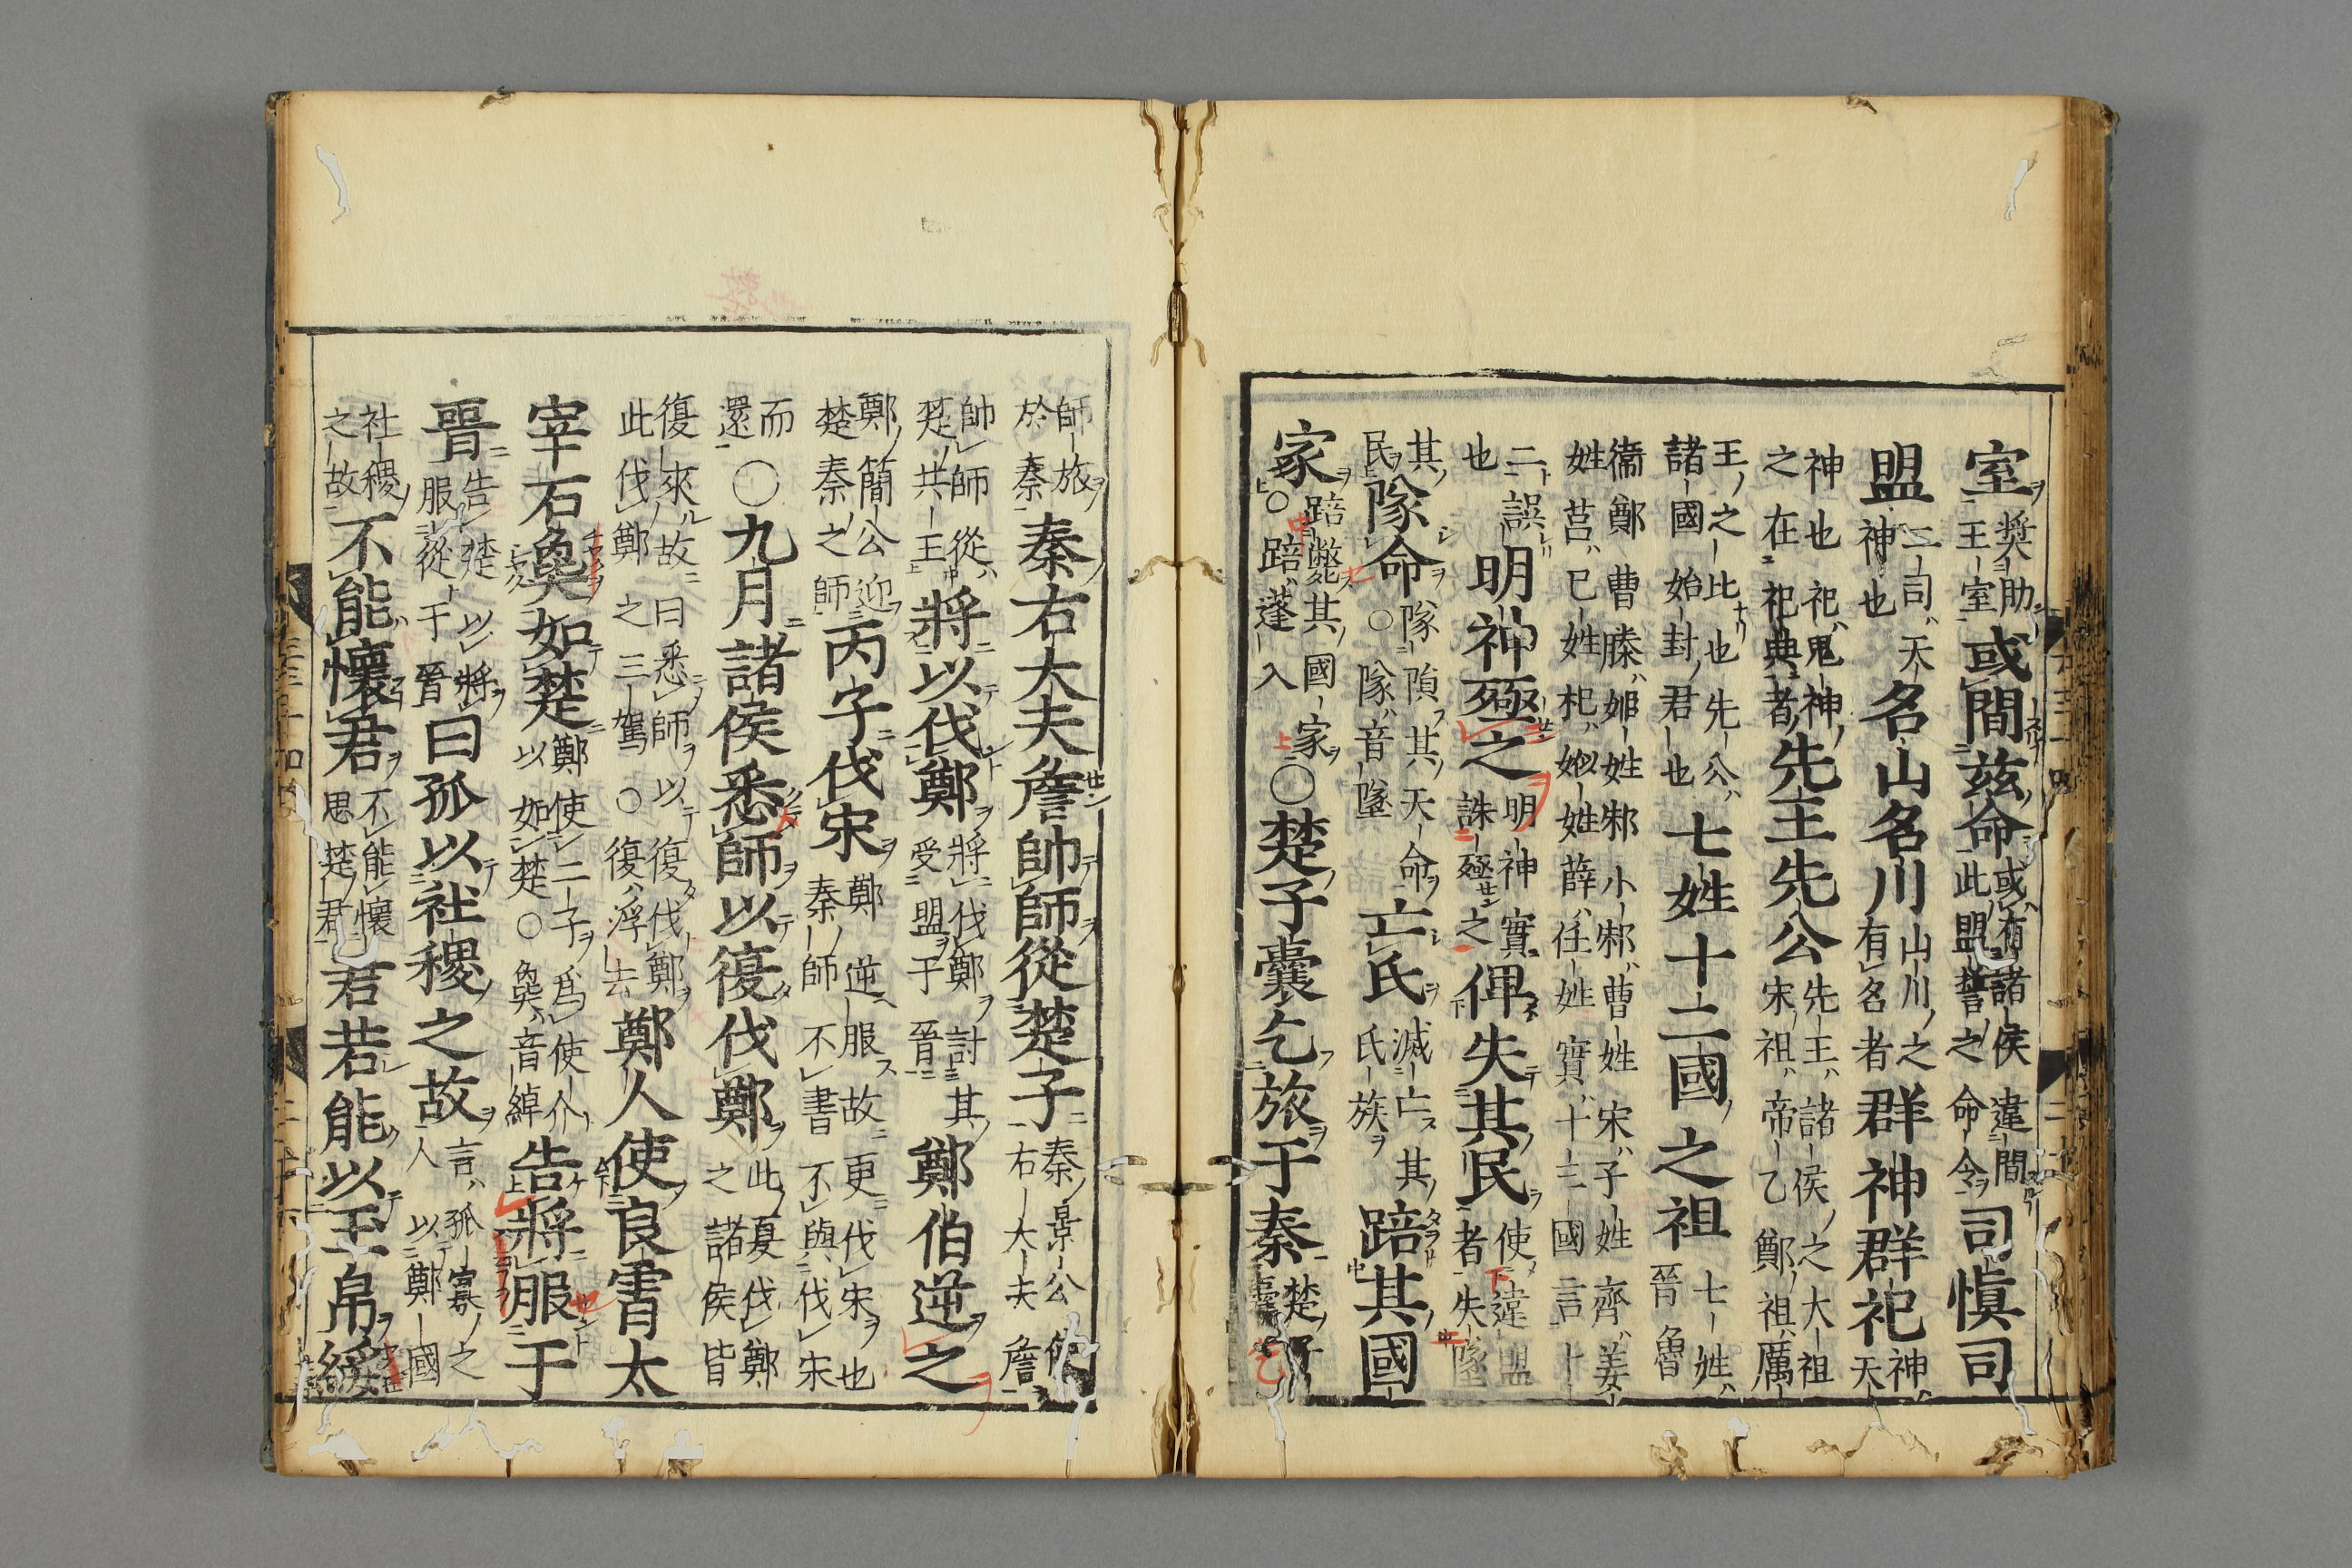 室奬助王室或間茲命或有諸侯違間此盟誓之命令司愼司
盟二司天神也名山名川山川之有名者群神群祀神天
神也祀鬼神之在祀典者先王先公先王諸侯之大祖宋祖帝乙鄭祖厲
王之比也先公諸國始封君也七姓十二國之祖七姓晉魯
衞鄭曹滕姬姓邾小邾曹姓宋子姓齊姜姓莒己姓杞姒姓薛任姓實十三國言十
二誤也明神殛之明神實誅殛之俾失其民使違盟者失墜
其民隊命隊隕其天命○隊音墜亡氏滅亡其氏族踣其國
家踣斃其國家○踣蒲入○楚子囊乞旅于秦楚子囊乞
師旅於秦秦右大夫詹帥師從楚子秦景公右大夫詹
帥師從楚共王將以伐鄭將伐鄭討其受盟于晉鄭伯逆之
鄭簡公迎楚秦之師丙子伐宋鄭逆服故更伐宋也秦師不書不與伐宋
而還○九月諸侯悉師以復伐鄭此夏伐鄭之諸侯皆
復來故曰悉師以復伐鄭此伐鄭之三駕○復浮去鄭人使良霄太
宰石㚟如楚鄭使二子爲使介以如楚○㚟音綽告將服于
晉告楚以將服從于晉曰孤以社稷之故言孤寡之人以鄭國
社稷之故不能懷君不能懷思楚君君若能以玉帛綏